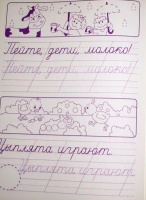 Пейте, дети, молоко!
Пейте, дети, молоко!
Цыплята играют.
Цыплята играют.